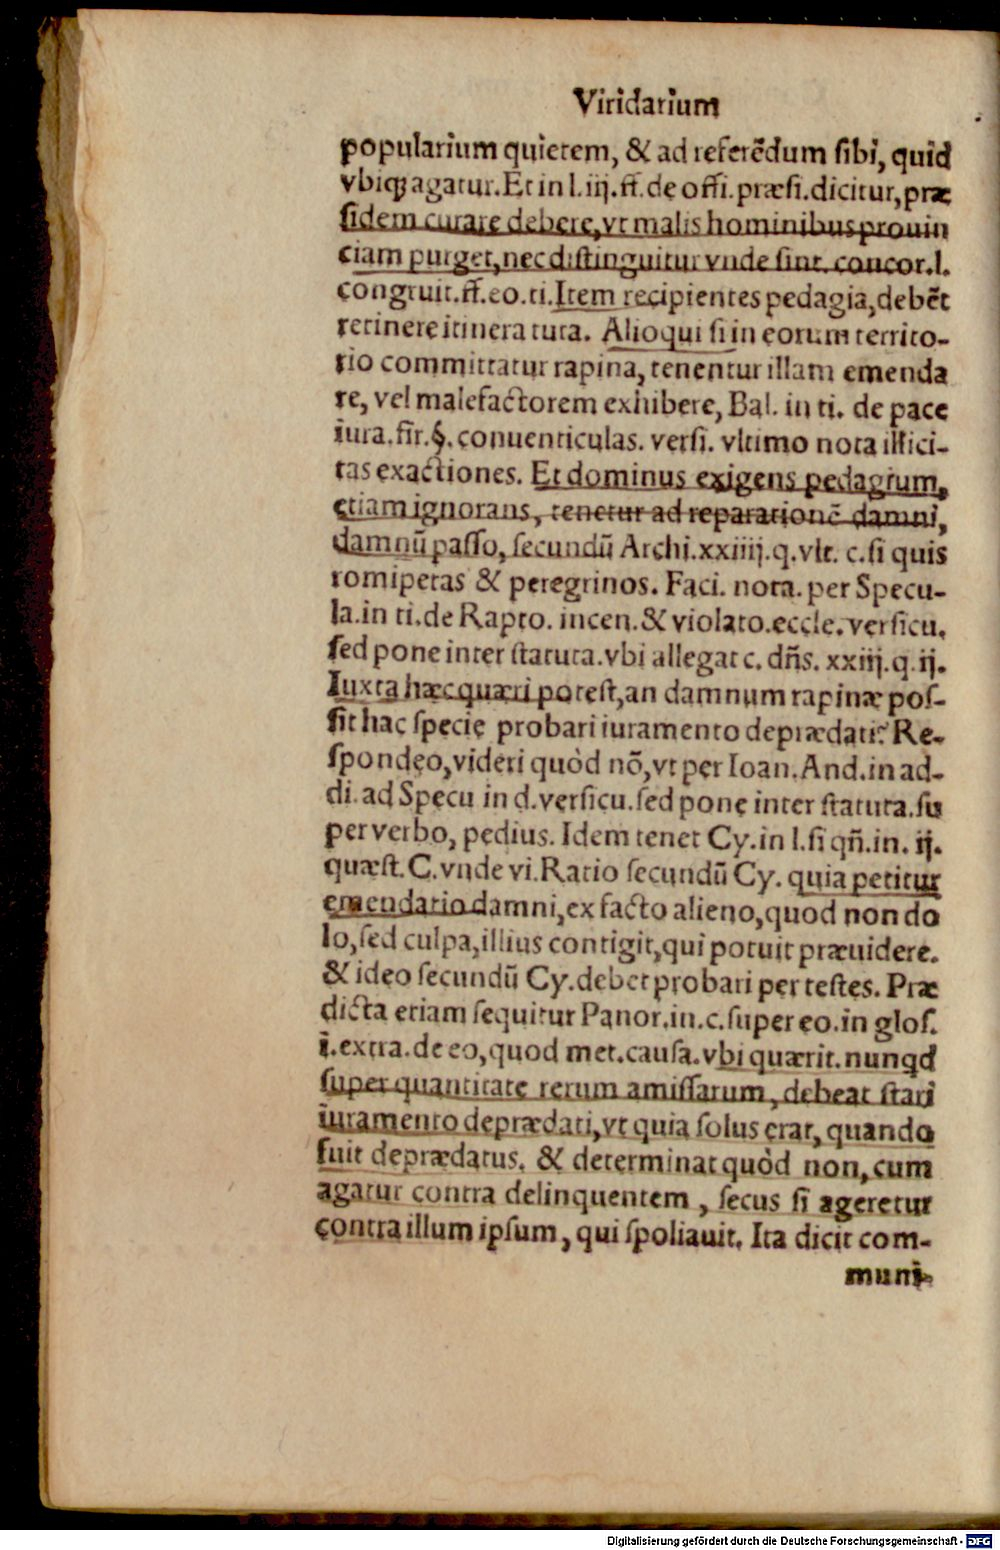 Viridarium
popularium quietem, & ad referēdum sibi, quid
vbiq; agatur. Et in l. iij. ff. de offi. præsi. dicitur, præ
sidem curare debere, vt malis hominibus prouin
ciam purget, nec distinguitur vnde sint. concor. l.
congruit. ff. eo. ti. Item recipientes pedagia, debēt
retinere itinera tuta. Alioqui si in eorum territo-
rio committatur rapina, tenentur illam emenda
re, vel malefactorem exhibere, Bal. in ti. de pace
iura. fir. §. conuenticulas. versi. vltimo nota illici-
tas exactiones. Et dominus exigens pedagium,
etiam ignorans, tenetur ad reparationē damni,
damnū passo, secundū Archi. xxiiij. q. vlt. c. si quis
romipetas & peregrinos. Faci. nota. per Specu-
la. in ti. de Rapto. incen. & violato. eccle. versicu.
sed pone inter statuta. vbi allegat c. dñs. xxiij. q. ij.
Iuxta hæc quæri potest, an damnum rapinæ pos-
sit hac specie probari iuramento deprædati? Re-
spondeo, videri quòd nō, vt per Ioan. And. in ad-
di. ad Specu in d. versicu. sed pone inter statuta. su
per verbo, pedius. Idem tenet Cy. in l. si qñ. in. ij.
quæst. C. vnde vi. Ratio secundū Cy. quia petitur
emendatio damni, ex facto alieno, quod non do
lo, sed culpa, illius contigit, qui potuit præuidere.
& ideo secundū Cy. debet probari per testes. Præ
dicta etiam sequitur Panor. in. c. super eo. in glos.
i. extra. de eo, quod met. causa. vbi quærit. nunqd
super quantitate rerum amissarum, debeat stari
iuramento deprædati, vt quia solus erat, quando
fuit deprædatus. & determinat quòd non, cum
agatur contra delinquentem, secus si ageretur
contra illum ipsum, qui spoliauit. Ita dicit com-
muni-
Digitalisierung gefördert durch die Deutsche Forschungsgemeinschaft - DFG